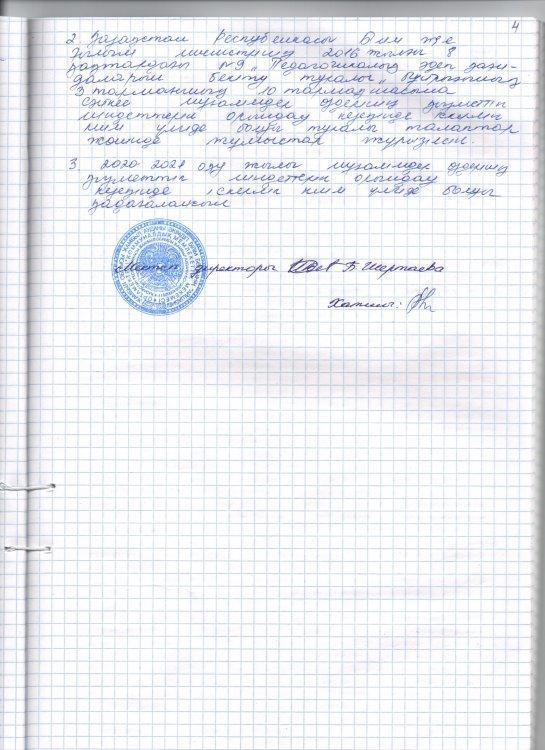 4
2. Қазақстан Республикасы Білім және
Ғылым министрінің 2016 жылғы 8
қаңтардағы №9 „Педагогикалық әдеп қағи-
даларын бекіту туралы" бұйрығының
3 тармағының 10 тармақшасына
сәйкес мұғалімдер өздерінің қызметтік
міндеттерін орындау кезеңінде іскерлік
киім үлгіде болуы туралы талаптар
жөнінде жұмыстар жүргізілсін.
3. 2020-2021 оқу жылы мұғалімдер өздерінің
қызметтік міндеттерін орындау
кезеңінде іскерлік киім үлгіде болуы
қадағалансын
Мектеп директоры Б Шертаева
Хатшы: